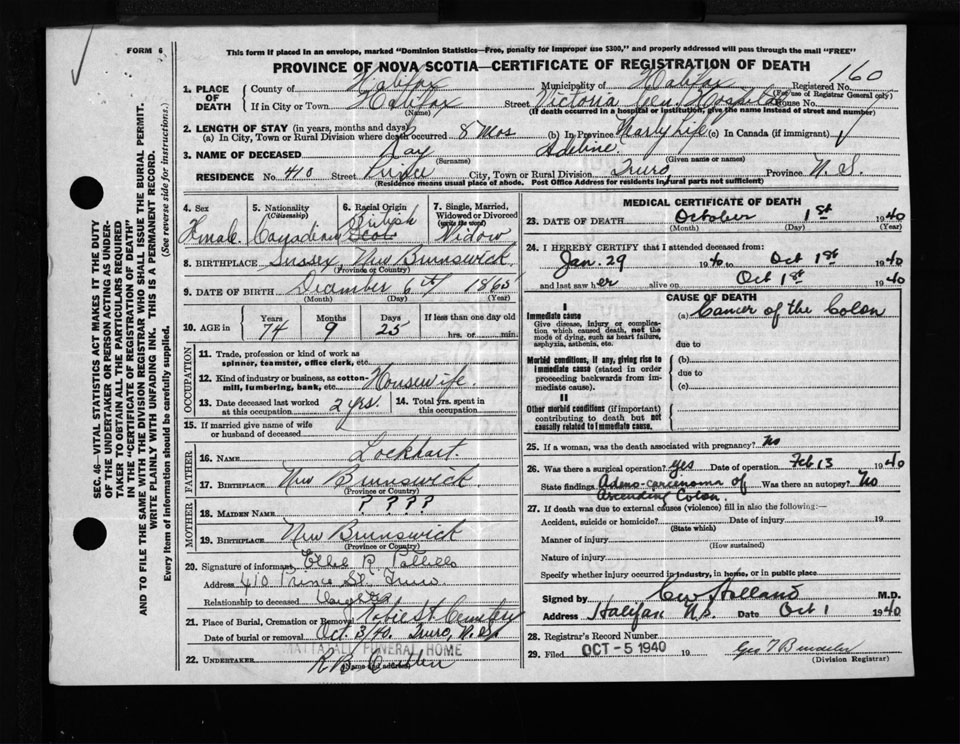 FORM 6
This form if placed in an envelope, marked "Dominion Statistics—Free, penalty for improper use $300," and properly addressed will pass through the mail "FREE"
PROVINCE OF NOVA SCOTIA—CERTIFICATE OF REGISTRATION OF DEATH
160
1. PLACE OF DEATH
County of Halifax Municipality of Halifax Registered No.
(For use of Registrar General only)
If in City or Town Halifax Street Victoria Gen. Hospital House No.
(Name) (If death occurred in a hospital or institution, give the name instead of street and number)
2. LENGTH OF STAY (in years, months and days)
(a) In City, Town or Rural Division where death occurred 8 Mos (b) In Province Marly Life (c) In Canada (if immigrant)
3. NAME OF DECEASED Adeline
(Surname) (Given name or names)
RESIDENCE No. 410 Street Prince City, Town or Rural Division Truro, Province N. S.
(Residence means usual place of abode. Post Office Address for residents in rural parts not sufficient)
4. Sex
Female
5. Nationality
(Citizenship)
Canadian
6. Racial Origin
British
Scot
7. Single, Married, Widowed or Divorced
(write the word)
Widow
8. BIRTHPLACE Sussex, New Brunswick
(Province or Country)
9. DATE OF BIRTH December 6th 1865
(Month) (Day) (Year)
10. AGE in
Years Months Days If less than one day old
74 9 25 hrs. or min.
OCCUPATION
11. Trade, profession or kind of work as spinner, teamster, office clerk, etc.
12. Kind of industry or business, as cotton-mill, lumbering, bank, etc. Housewife.
13. Date deceased last worked at this occupation 2 yrs 14. Total yrs. spent in this occupation
15. If married give name of wife or husband of deceased
FATHER
16. NAME Lockhart.
17. BIRTHPLACE New Brunswick
(Province or Country)
MOTHER
18. MAIDEN NAME ? ? ? ?
19. BIRTHPLACE New Brunswick
(Province or Country)
20. Signature of informant
Address 410 Prince St. Truro
Relationship to deceased Daughter
21. Place of Burial, Cremation or Removal Robie St. Cemetery
Date of burial or removal Oct. 3/40. Truro, N.S.
MATTATALL FUNERAL HOME
22. UNDERTAKER
(Name and address)
MEDICAL CERTIFICATE OF DEATH
23. DATE OF DEATH October 1st 1940
(Month) (Day) (Year)
24. I HEREBY CERTIFY that I attended deceased from:
Jan. 29 1940 to Oct 1st 1940
and last saw her alive on Oct 1st 1940
CAUSE OF DEATH
I
Immediate cause
Give disease, injury or complication which caused death, not the mode of dying, such as heart failure, asphyxia, asthenia, etc.
(a) Cancer of the Colon
due to
Morbid conditions, if any, giving rise to immediate cause (stated in order proceeding backwards from immediate cause).
(b)
due to
(c)
II
Other morbid conditions (if important) contributing to death but not causally related to immediate cause.
25. If a woman, was the death associated with pregnancy? No
26. Was there a surgical operation? yes Date of operation Feb 13 1940
State findings Adeno-carcenoma of Ascending Colon. Was there an autopsy? No
27. If death was due to external causes (violence) fill in also the following:—
Accident, suicide or homicide? Date of injury 19
(State which)
Manner of injury
(How sustained)
Nature of injury
Specify whether injury occurred in industry, in home, or in public place
Signed by CW Holland M.D.
Address Halifax N.S. Date Oct 1 1940
28. Registrar's Record Number
29. Filed OCT -5 1940 19
(Division Registrar)
SEC. 46—VITAL STATISTICS ACT MAKES IT THE DUTY
OF THE UNDERTAKER OR PERSON ACTING AS UNDERTAKER
TO OBTAIN ALL THE PARTICULARS REQUIRED
IN THE "CERTIFICATE OF REGISTRATION OF DEATH"
AND TO FILE THE SAME WITH THE DIVISION REGISTRAR WHO SHALL ISSUE THE BURIAL PERMIT.
WRITE PLAINLY WITH UNFADING INK. THIS IS A PERMANENT RECORD.
Every item of information should be carefully supplied. (See reverse side for instructions.)